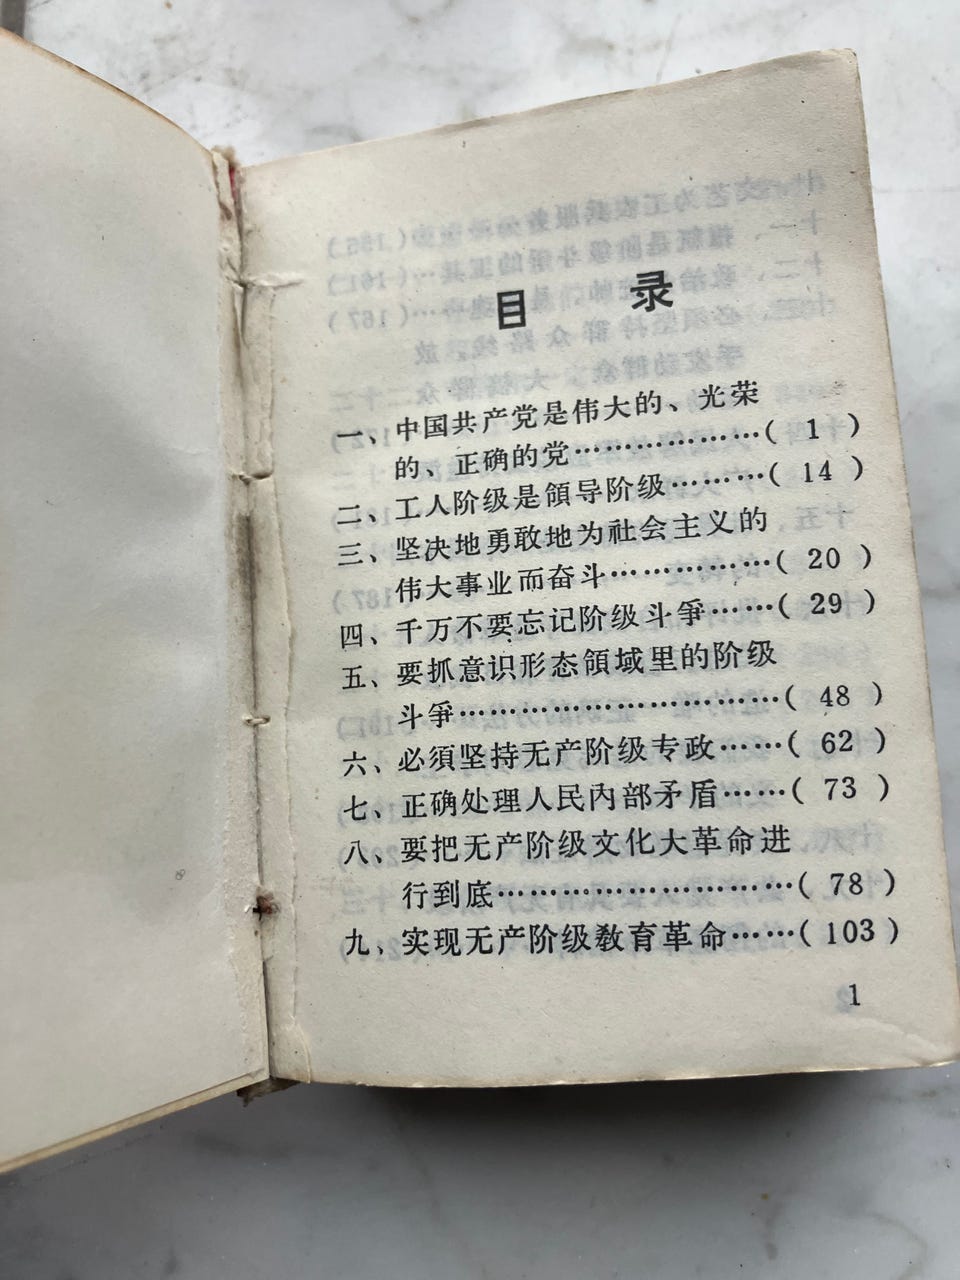 目 录
一、中国共产党是伟大的、光荣
的、正确的党………………( 1 )
二、工人阶级是領导阶级………( 14 )
三、坚决地勇敢地为社会主义的
伟大事业而奋斗……………( 20 )
四、千万不要忘记阶级斗爭……( 29 )
五、要抓意识形态領域里的阶级
斗爭…………………………( 48 )
六、必須坚持无产阶级专政……( 62 )
七、正确处理人民內部矛盾……( 73 )
八、要把无产阶级文化大革命进
行到底………………………( 78 )
九、实现无产阶级教育革命……( 103 )
1